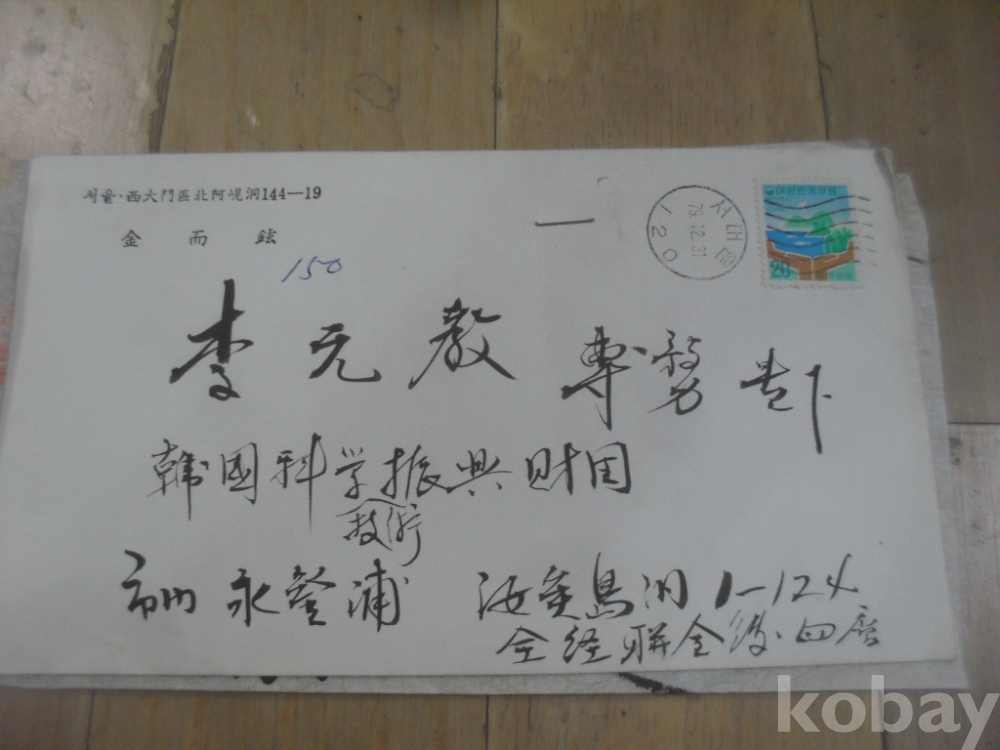 서울·西大門區北阿峴洞144—19
金而鉉
150
대한민국우표
20
서대문
79.12.31
120
李元教 專務 貴下
韓國科学技術振興財団
市内 永登浦 汝矣島洞 1-124
全経聯会舘
kobay